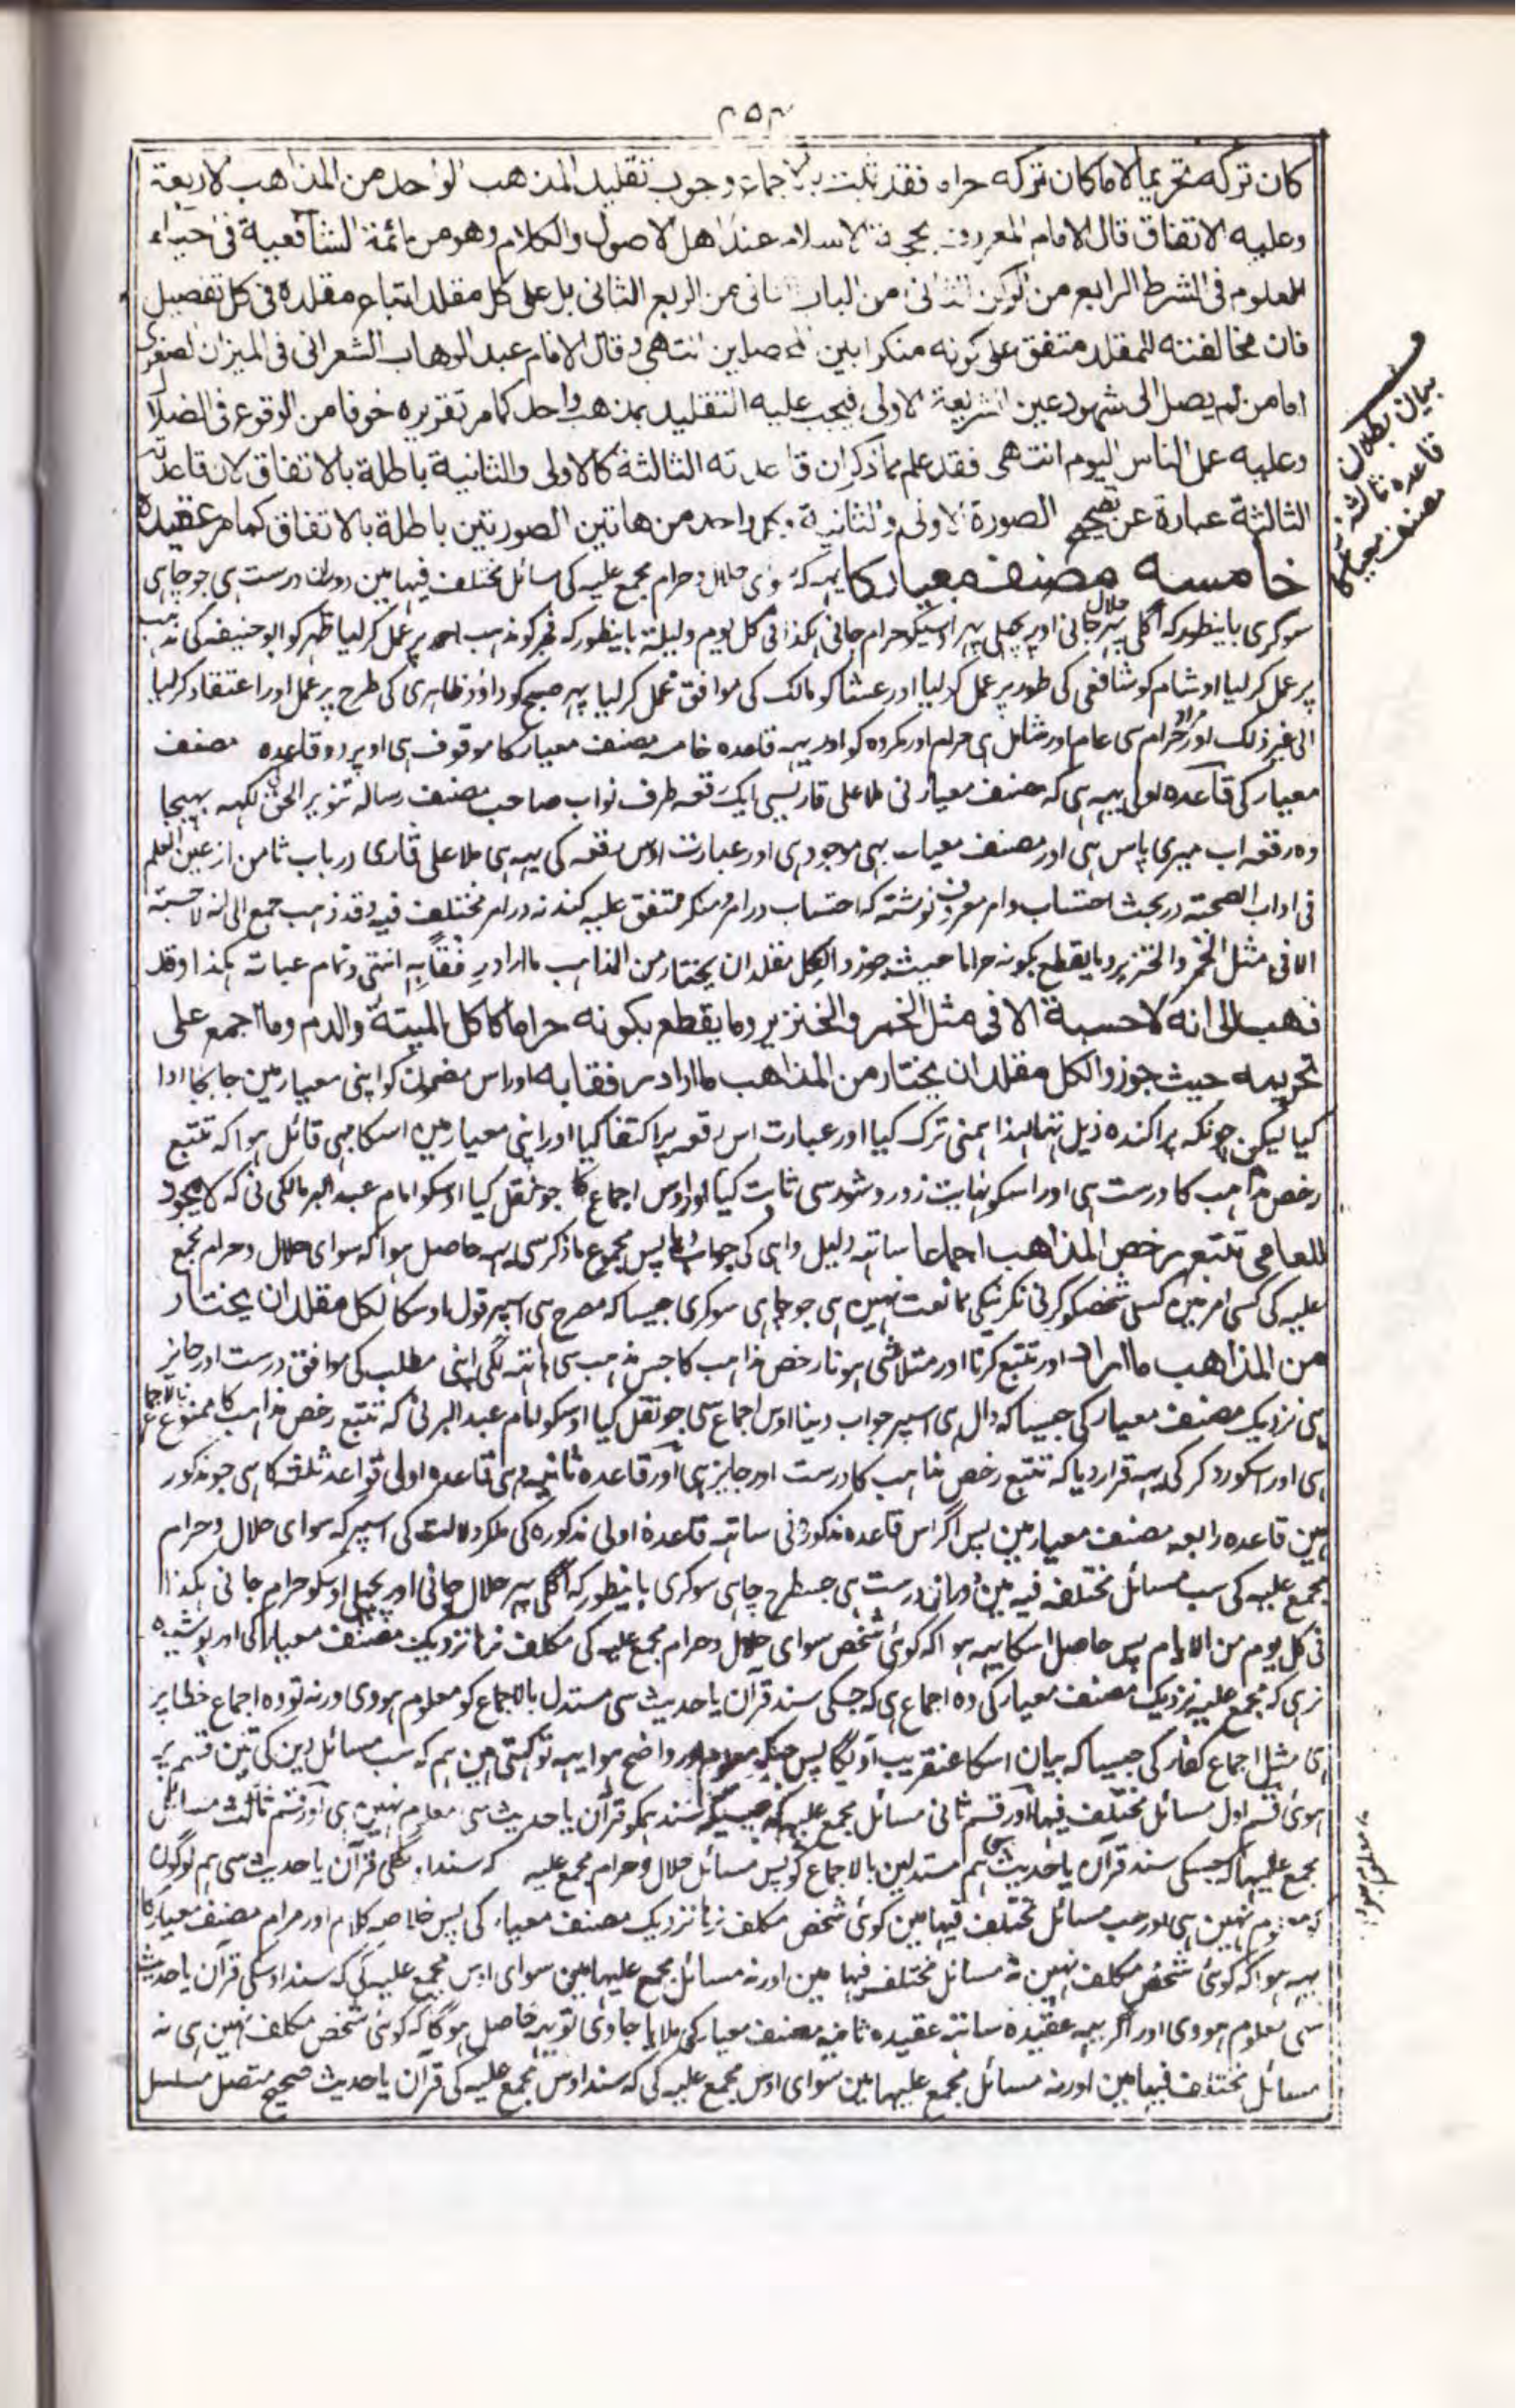 ۲۵۳
كان تركه تحريما لا ما كان تركه حراما فقد ثبت بالاجماع وجوب تقليد المذهب الواحد من المذاهب لاربعة
وعليه الاتفاق قال الامام المعروف بحجة الاسلام عند اهل الاصول والكلام وهو من ائمة الشافعية فى احياء
العلوم فى الشرط الرابع من الركن الثانى من الباب الثانى من الربع الثانى بل على كل مقلد اتباع مقلده فى كل تفصيل
فان مخالفته للمقلد متفق على كونه منكرا بين المحصلين انتهى وقال الامام عبد الوهاب الشعرانى فى الميزان الصغرى
اما من لم يصل الى شهود عين الشريعة الاولى فيجب عليه التقليد بمذهب واحد كما مر تقريره خوفا من الوقوع فى الضلال
وعليه عمل الناس اليوم انتهى فقد علم مما ذكر ان قاعدته الثالثة كالاولى والثانية باطلة بالاتفاق لان قاعدته
الثالثة عبارة عن تصحيح الصورة الاولى والثانية وكل واحد من هاتين الصورتين باطلة بالاتفاق كما مر عقيده
خامسه مصنف معيار كا يہہ کہ سوای حلال وحرام مجمع علیہ کی مسائل مختلف فیہا مین دوران درست ہی جو چاہی
سو کری باینطور کہ اگلی پہر حلال جانی اور پچھلی پہر اوسیکو حرام جانی ہکذا فی کل یوم ولیلة باینطور کہ فجر کو مذہب احمد پر عمل کر لیا ظہر کو ابو حنیفہ کی مذہب
پر عمل کر لیا اور شام کو شافعی کی طور پر عمل کر لیا اور عشا کو مالک کی موافق عمل کر لیا پہر صبح کو داؤد ظاہری کی طرح پر عمل اور اعتقاد کر لیا
الی غیر ذلک اور مراد حرام سی عام اور شامل ہی حرام اور مکروہ کو اور یہہ قاعدہ خامسہ مصنف معیار کا موقوف ہی اوپر دو قاعدہ مصنف
معیار کی قاعدہ اولی یہہ ہی کہ مصنف معیار نی ملا علی قاری سی ایک رقعہ طرف نواب صاحب مصنف رسالہ تنویر الحق کی لکہہ بہیجا
وہ رقعہ اب میری پاس ہی اور مصنف معیار بہی موجود ہی اور عبارت اوس رقعہ کی یہہ ہی ملا علی قاری در باب ثامن از عین العلم
فی اداب الصحبة در بحث احتساب وامر معروف نوشتہ کہ احتساب در امر ومنکر متفق علیہ کنند نہ در امر مختلف فیہ وقد ذہب جمع الی انہ لا حسبة
الا فی مثل الخمر والخنزیر وما یقطع بکونہ حراما حیث جوزوا لکل مقلد ان یختار من المذاہب ما اراد رفقا بہ انتہی وتمام عبارتہ ہکذا وقد
ذهب الى انه لا حسبة الا فى مثل الخمر والخنزير وما يقطع بكونه حراما كاكل الميتة والدم وما اجمع على
تحريمه حيث جوزوا لكل مقلد ان يختار من المذاهب ما اراد رفقا به اور اس مضمون کو اپنی معیار مین جا بجا ادا
کیا لیکن چونکہ پراکندہ ذیل تہا لہذا ہمنی ترک کیا اور عبارت اس رقعہ پر اکتفا کیا اور اپنی معیار مین اسکا بہی قائل ہوا کہ تتبع
رخص مذاہب کا درست ہی اور اسکو نہایت زور وشور سی ثابت کیا اور اوس اجماع کا جو نقل کیا اوسکو امام عبد البر مالکی نی کہ لا يجوز
للعامى تتبع رخص المذاهب اجماعا ساتہہ دلیل واہی کی جواب دیا پس مجموع ما ذکر سی یہہ حاصل ہوا کہ سوای حلال وحرام مجمع
علیہ کی کسی امر مین کسی شخصکو کرنی نکرنیکی ممانعت نہین ہی جو چاہی سو کری جیسا کہ مصرح ہی اسپر قول اوسکا لكل مقلد ان يختار
من المذاهب ما اراد اور تتبع کرنا اور متلاشی ہونا رخص مذاہب کا جس مذہب سی ہاتہہ لگی اپنی مطلب کی موافق درست اور جایز
ہی نزدیک مصنف معیار کی جیسا کہ دال ہی اسپر جواب دینا اوس اجماع سی جو نقل کیا اوسکو امام عبد البر نی کہ تتبع رخص مذاہب کا ممنوع بالاجماع
ہی اور اسکو رد کر کی یہہ قرار دیا کہ تتبع رخص مذاہب کا درست اور جایز ہی اور قاعدہ ثانیہ وہی قاعدہ اولی قواعد ثلثہ کا ہی جو مذکور
ہین قاعدہ رابعہ مصنف معیار مین پس اگر اس قاعدہ مذکورہ نی ساتہہ قاعدہ اولی مذکورہ کی ملکر دلالت کی اسپر کہ سوای حلال وحرام
مجمع علیہ کی سب مسائل مختلف فیہ مین دوران درست ہی جسطرح چاہی سو کری باینطور کہ اگلی پہر حلال جانی اور پچھلی اوسکو حرام جانی ہکذا
فی کل یوم من الایام پس حاصل اسکا یہہ ہوا کہ کوئی شخص سوای حلال وحرام مجمع علیہ کی مکلف نرہا نزدیک مصنف معیار کی اور پوشیدہ
نرہی کہ مجمع علیہ نزدیک مصنف معیار کی وہ اجماع ہی کہ جسکی سند قرآن یا حدیث سی مستدل بالاجماع کو معلوم ہووی ورنہ تو وہ اجماع خطا پر
ہی مثل اجماع کفار کی جیسا کہ بیان اسکا عنقریب آویگا پس جبکہ معلوم اور واضح ہوا یہہ تو کہتی ہین ہم کہ سب مسائل دین کی تین قسم پر
ہوئی قسم اول مسائل مختلف فیہا اور قسم ثانی مسائل مجمع علیہا کہ جسکی سند ہمکو قرآن یا حدیث سی معلوم نہین ہی اور قسم ثالث مسائل
مجمع علیہا کہ جسکی سند قرآن یا حدیث سی ہم مستدلین بالاجماع کو پس مسائل حلال وحرام مجمع علیہ کہ سند اونکی قرآن یا حدیث سی ہم لوگون
کو معلوم نہین ہی اور سب مسائل مختلف فیہا مین کوئی شخص مکلف نرہا نزدیک مصنف معیار کی پس خلاصہ کلام اور مرام مصنف معیار کا
یہہ ہوا کہ کوئی شخص مکلف نہین نہ مسائل مختلف فیہا مین اور نہ مسائل مجمع علیہا مین سوای اوس مجمع علیہ کی کہ سند اوسکی قرآن یا حدیث
سی معلوم ہووی اور اگر یہہ عقیدہ ساتہہ عقیدہ ثانیہ مصنف معیار کی ملایا جاوی تو یہہ حاصل ہوگا کہ کوئی شخص مکلف نہین ہی نہ
مسائل مختلف فیہا مین اور نہ مسائل مجمع علیہا مین سوای اوس مجمع علیہ کی کہ سند اوس مجمع علیہ کی قرآن یا حدیث صحیح متصل مسلسل
بیان بطلان
قاعدہ ثالثہ
مصنف معیار کا